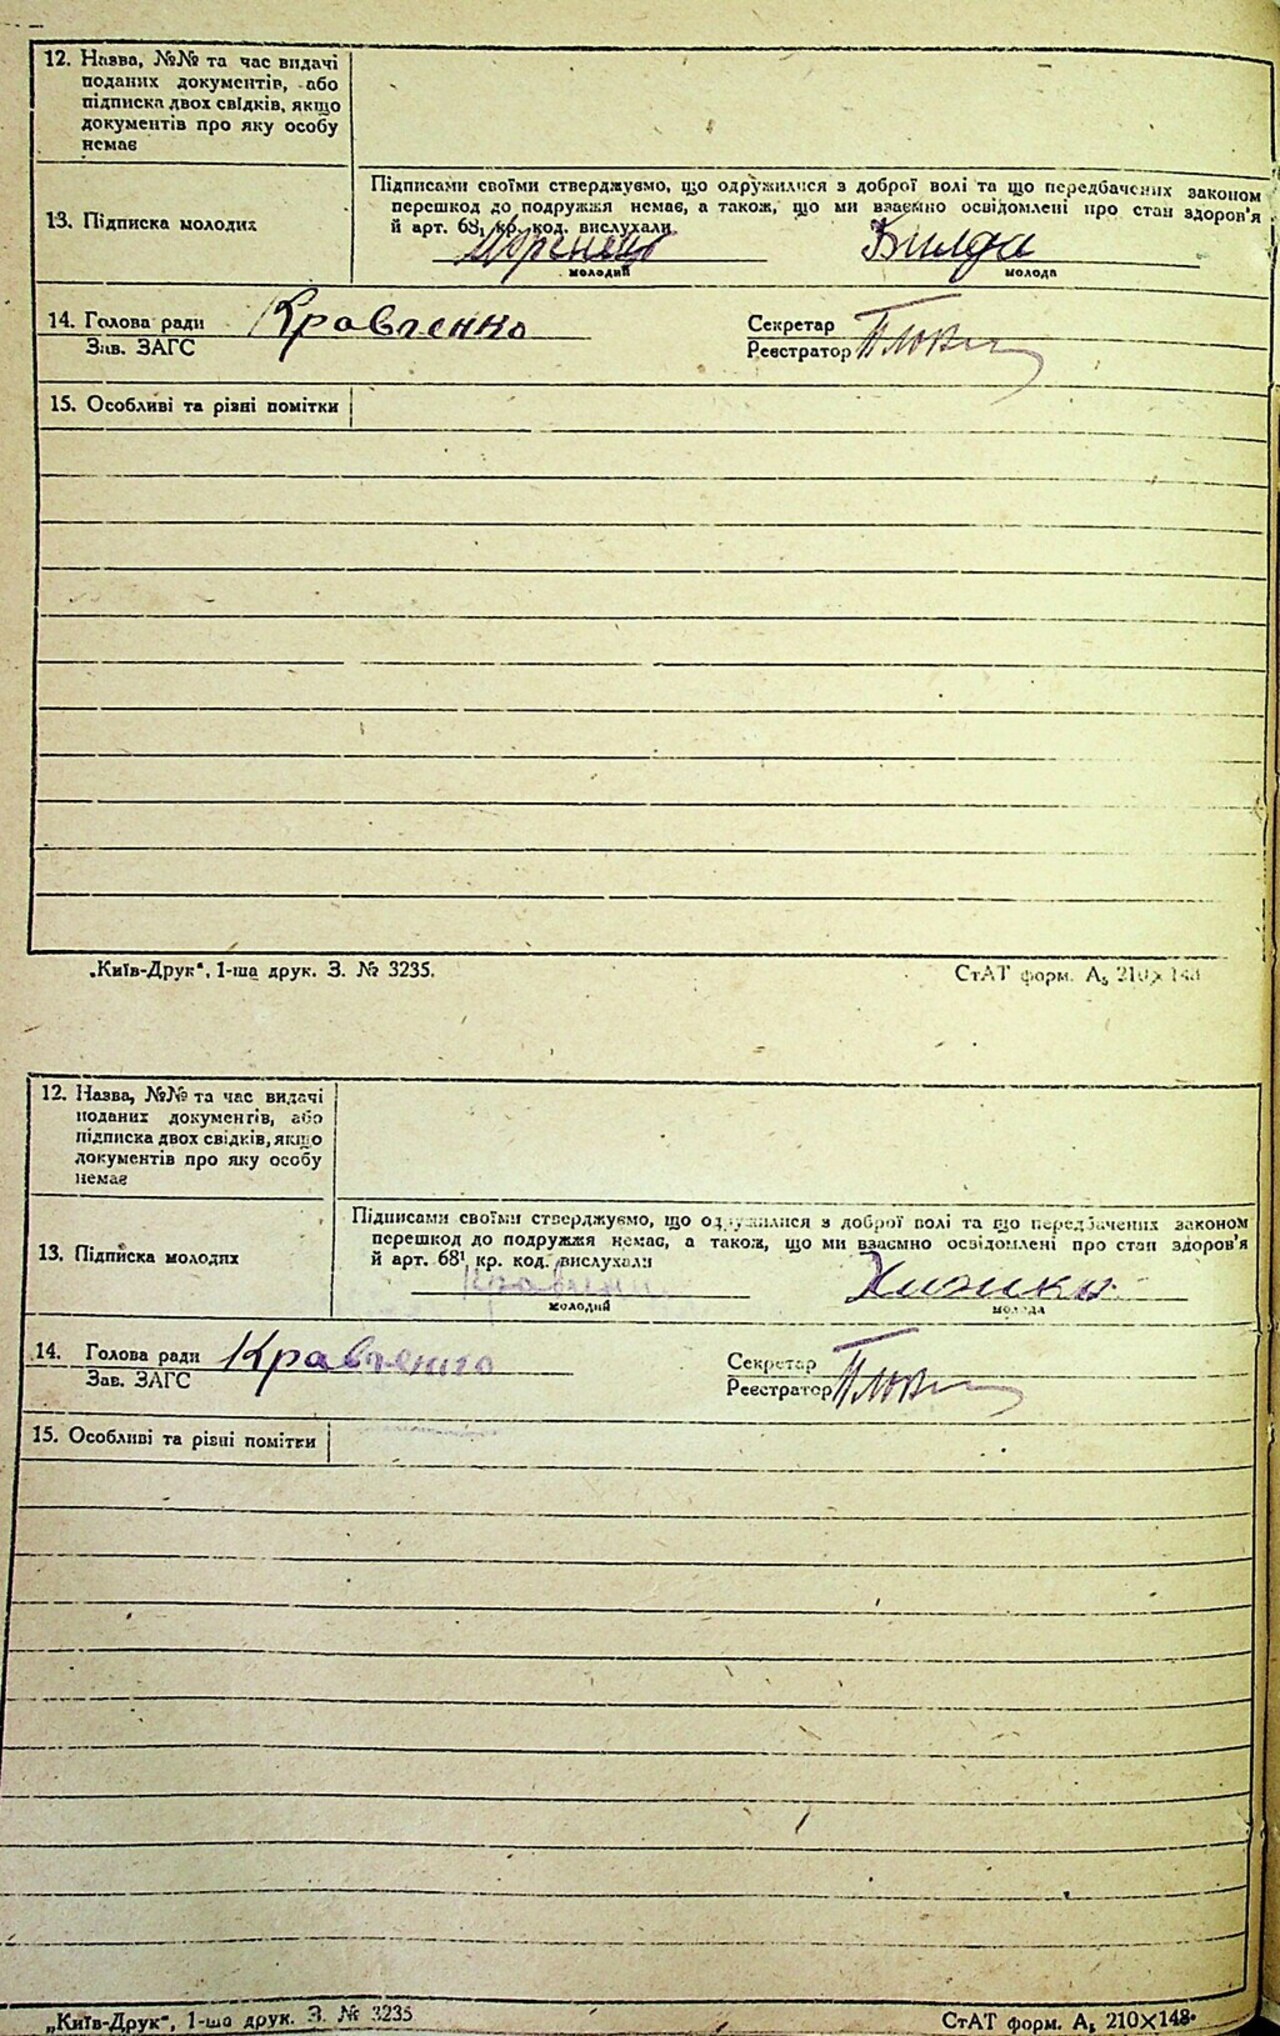 12. Назва, №№ та час видачі
поданих документів, або
підписка двох свідків, якщо
документів про яку особу
немає
13. Підписка молодих
Підписами своїми стверджуємо, що одружилися з доброї волі та що передбачених законом
перешкод до подружжя немає, а також, що ми взаємно освідомлені про стан здоров'я
й арт. 68₁ кр. код. вислухали
молодий
молода
14. Голова ради Кравченко
Зав. ЗАГС
Секретар
Реєстратор
15. Особливі та різні помітки
„Київ-Друк“, 1-ша друк. З. № 3235.
СтАТ форм. А₅ 210×148
12. Назва, №№ та час видачі
поданих документів, або
підписка двох свідків, якщо
документів про яку особу
немає
13. Підписка молодих
Підписами своїми стверджуємо, що одружилися з доброї волі та що передбачених законом
перешкод до подружжя немає, а також, що ми взаємно освідомлені про стан здоров'я
й арт. 68¹ кр. код. вислухали
молодий
молода
14. Голова ради Кравченко
Зав. ЗАГС
Секретар
Реєстратор
15. Особливі та різні помітки
„Київ-Друк“, 1-ша друк. З. № 3235
СтАТ форм. А₅ 210×148.